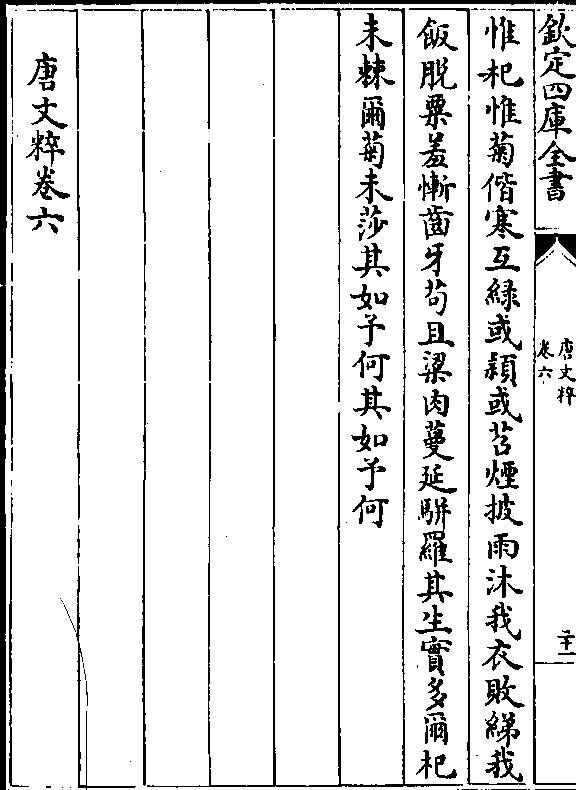 欽定四庫全書
唐文粹
卷六
二十一
惟杞惟菊偕寒互緑或頴或苕煙披雨沐我衣敗綈我
飯脱粟羞慚齒牙苟且粱肉蔓延駢羅其生實多爾杞
未棘爾菊未莎其如予何其如予何
唐文粹卷六